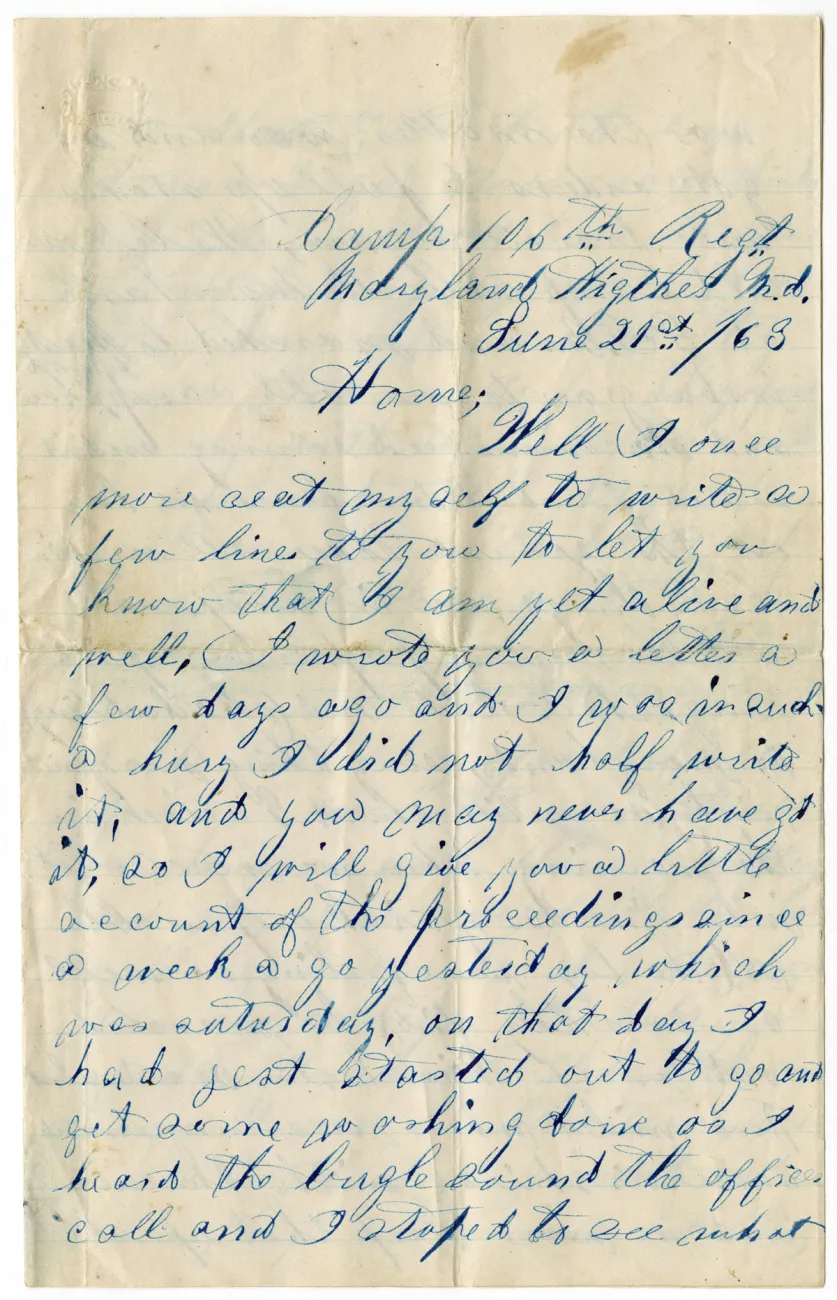 Camp 106th Regt
Maryland Higthes M.d.
June 21st /63
Home;
Well I once
more seat myself to write a
few lines to you to let you
know that I am yet alive and
well, I wrote you a letter a
few days ago and I was in such
a hury I did not half write
it, and you may never have got
it, so I will give you a little
account of the proceedings since
a week a go yesterday which
was saturday, on that day I
had jest started out to go and
get some washing done as I
heard the bugle sound the officer
call and I stoped to see what